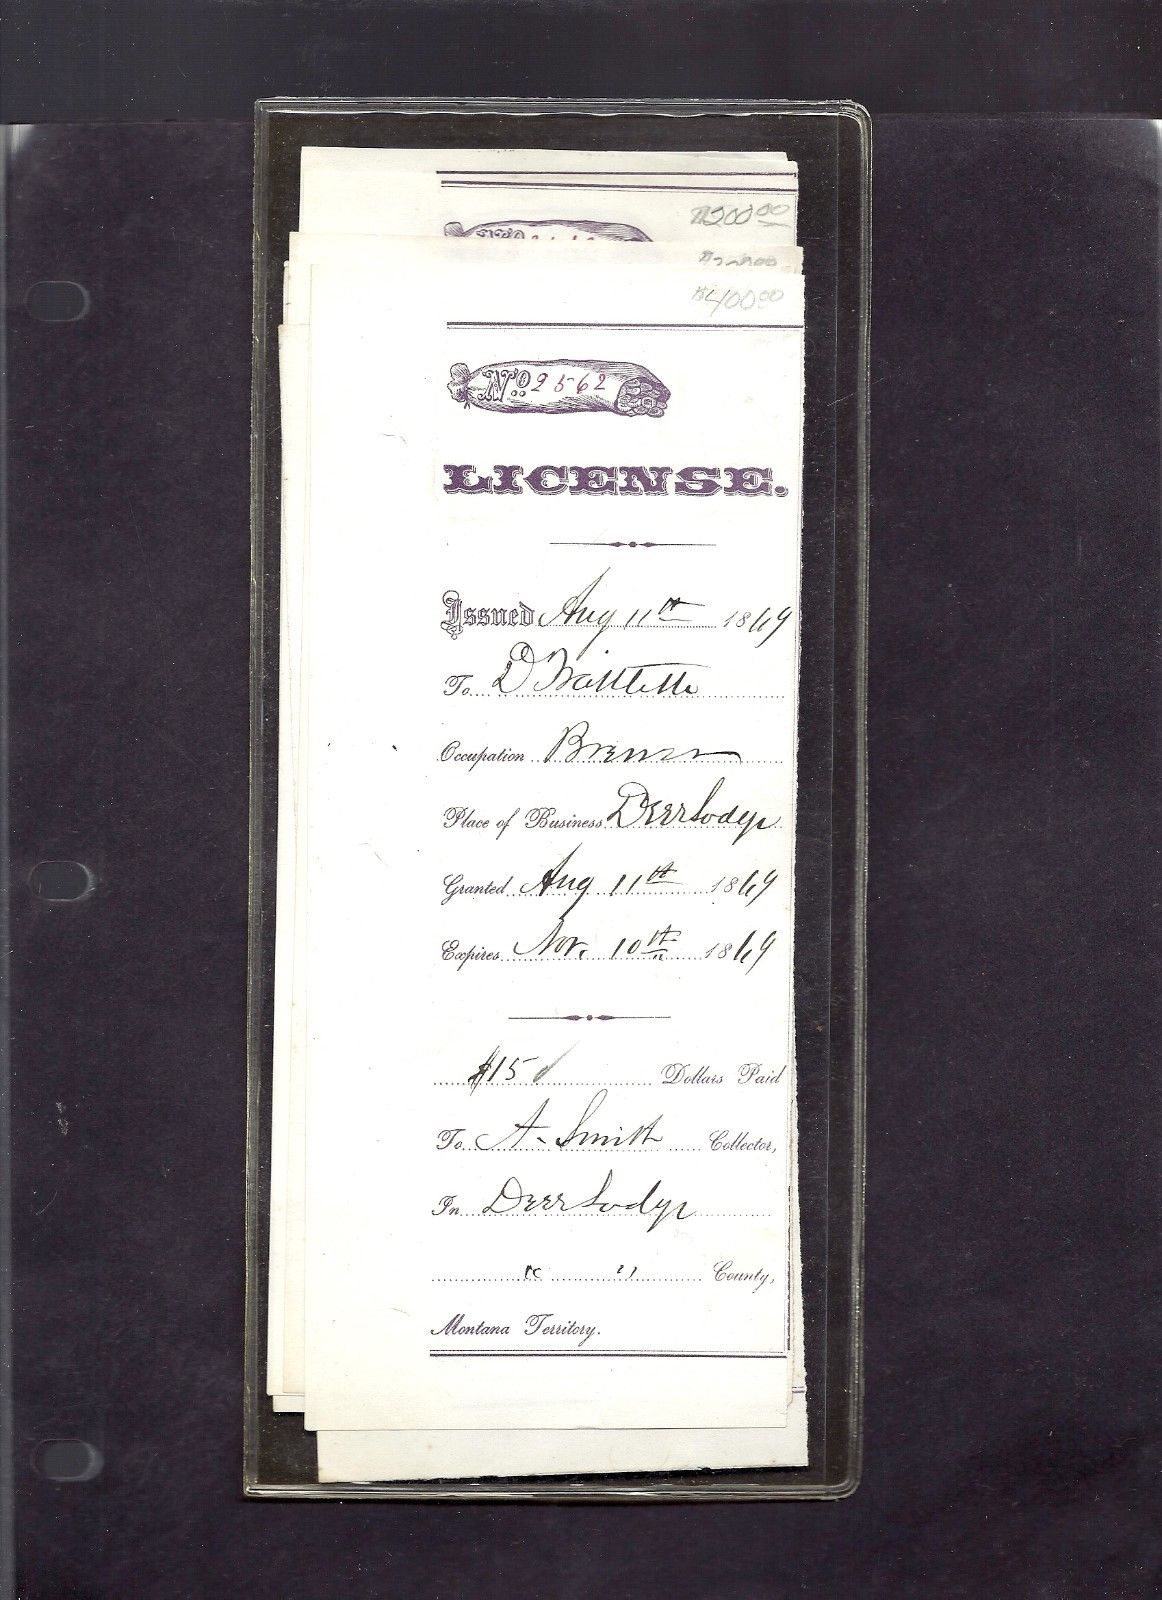 $200.00
$400.00
No. 2562
LICENSE.
Issued Aug 11th 1869
To D
Occupation Brewer
Place of Business Deer Lodge
Granted Aug 11th 1869
Expires Nov. 10th 1869
$15 Dollars Paid
To A. Smith Collector,
In Deer Lodge
" " County,
Montana Territory.